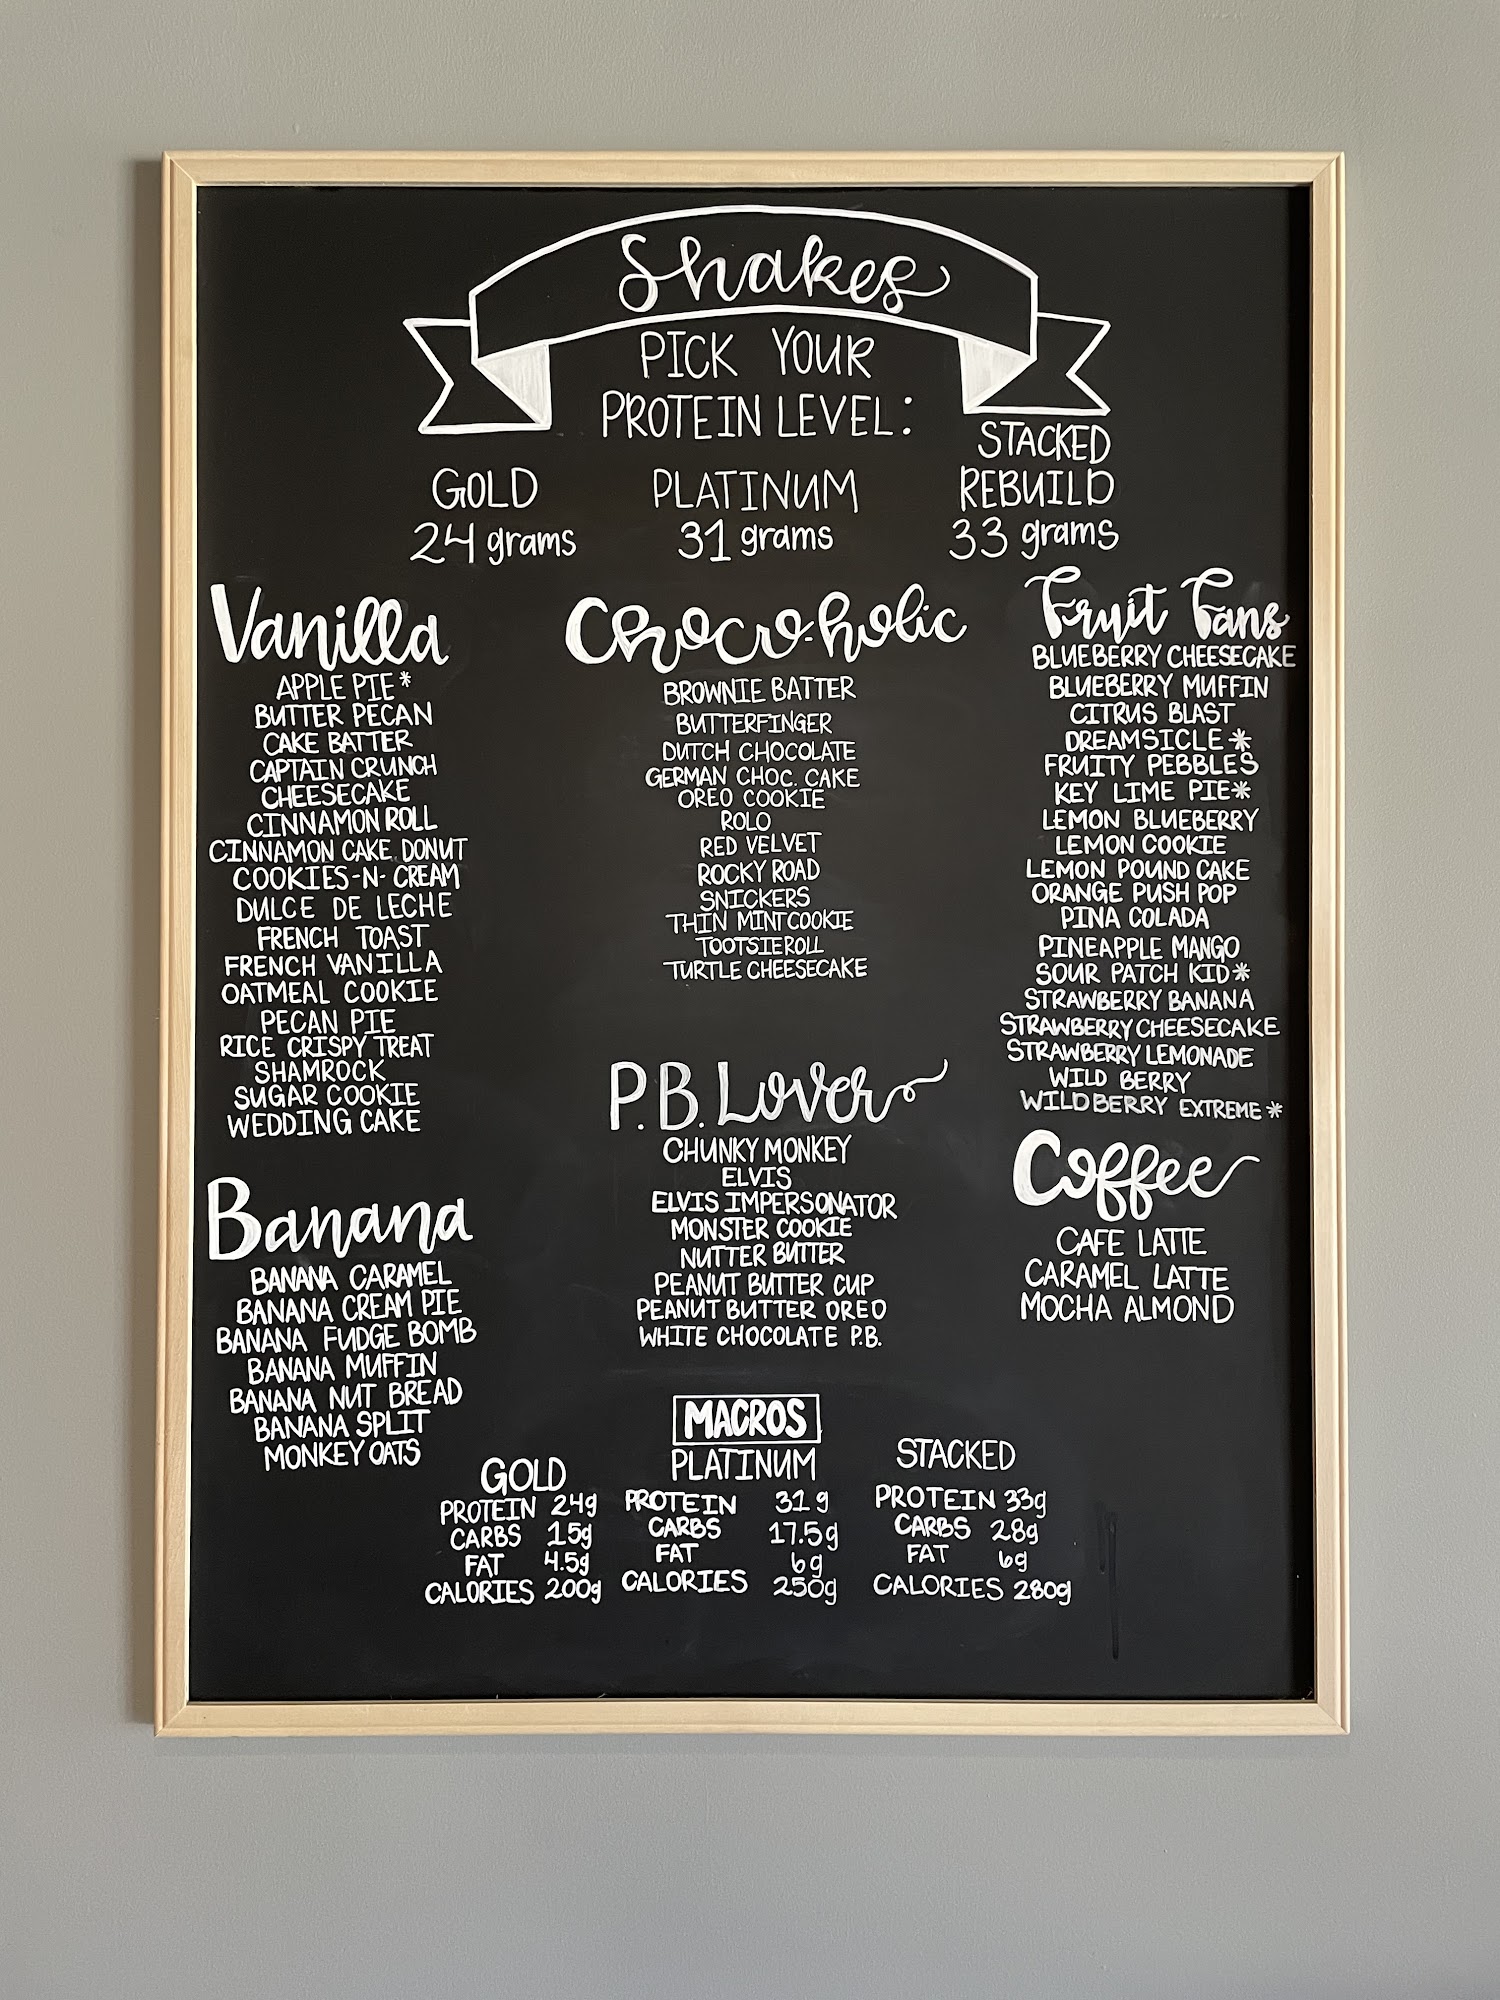 Shakes
PICK YOUR
PROTEIN LEVEL:
GOLD
24 grams
PLATINUM
31 grams
STACKED
REBUILD
33 grams
Vanilla
APPLE PIE*
BUTTER PECAN
CAKE BATTER
CAPTAIN CRUNCH
CHEESECAKE
CINNAMON ROLL
CINNAMON CAKE DONUT
COOKIES-N-CREAM
DULCE DE LECHE
FRENCH TOAST
FRENCH VANILLA
OATMEAL COOKIE
PECAN PIE
RICE CRISPY TREAT
SHAMROCK
SUGAR COOKIE
WEDDING CAKE
Banana
BANANA CARAMEL
BANANA CREAM PIE
BANANA FUDGE BOMB
BANANA MUFFIN
BANANA NUT BREAD
BANANA SPLIT
MONKEY OATS
Choco-holic
BROWNIE BATTER
BUTTERFINGER
DUTCH CHOCOLATE
GERMAN CHOC. CAKE
OREO COOKIE
ROLO
RED VELVET
ROCKY ROAD
SNICKERS
THIN MINT COOKIE
TOOTSIE ROLL
TURTLE CHEESECAKE
P.B. Lover
CHUNKY MONKEY
ELVIS
ELVIS IMPERSONATOR
MONSTER COOKIE
NUTTER BUTTER
PEANUT BUTTER CUP
PEANUT BUTTER OREO
WHITE CHOCOLATE P.B.
Fruit Fans
BLUEBERRY CHEESECAKE
BLUEBERRY MUFFIN
CITRUS BLAST
DREAMSICLE*
FRUITY PEBBLES
KEY LIME PIE*
LEMON BLUEBERRY
LEMON COOKIE
LEMON POUND CAKE
ORANGE PUSH POP
PINA COLADA
PINEAPPLE MANGO
SOUR PATCH KID*
STRAWBERRY BANANA
STRAWBERRY CHEESECAKE
STRAWBERRY LEMONADE
WILD BERRY
WILD BERRY EXTREME*
Coffee
CAFE LATTE
CARAMEL LATTE
MOCHA ALMOND
MACROS
GOLD
PROTEIN 24g
CARBS 15g
FAT 4.5g
CALORIES 200g
PLATINUM
PROTEIN 31g
CARBS 17.5g
FAT 6g
CALORIES 250g
STACKED
PROTEIN 33g
CARBS 28g
FAT 6g
CALORIES 280g